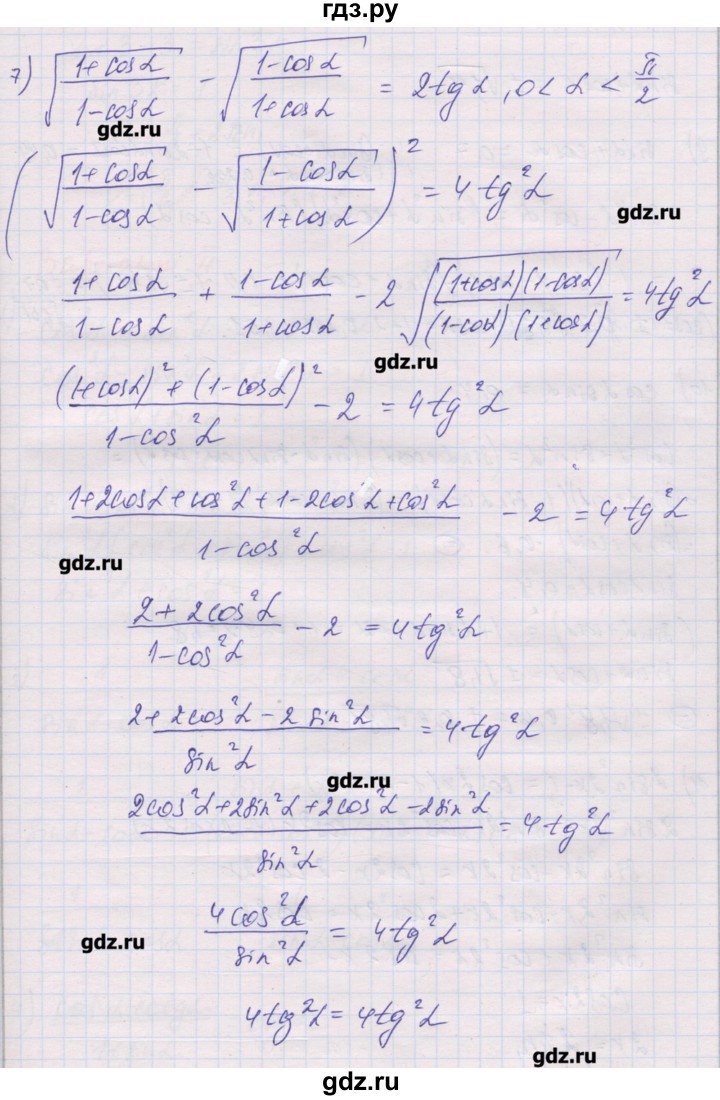 гдз.ру
7) √((1+cosα)/(1-cosα)) - √((1-cosα)/(1+cosα)) = 2tgα, 0<α<π/2
gdz.ru
(√((1+cosα)/(1-cosα)) - √((1-cosα)/(1+cosα)))² = 4tg²α
gdz.ru
(1+cosα)/(1-cosα) + (1-cosα)/(1+cosα) - 2√((1+cosα)(1-cosα)/(1-cosα)(1+cosα)) = 4tg²α
gdz.ru
((1+cosα)²+(1-cosα)²)/(1-cos²α) - 2 = 4tg²α
(1+2cosα+cos²α+1-2cosα+cos²α)/(1-cos²α) - 2 = 4tg²α
gdz.ru
(2+2cos²α)/(1-cos²α) - 2 = 4tg²α
(2+2cos²α-2sin²α)/(sin²α) = 4tg²α
gdz.ru
(2cos²α+2sin²α+2cos²α-2sin²α)/(sin²α) = 4tg²α
(4cos²α)/(sin²α) = 4tg²α
gdz.ru
4tg²α = 4tg²α
gdz.ru
gdz.ru